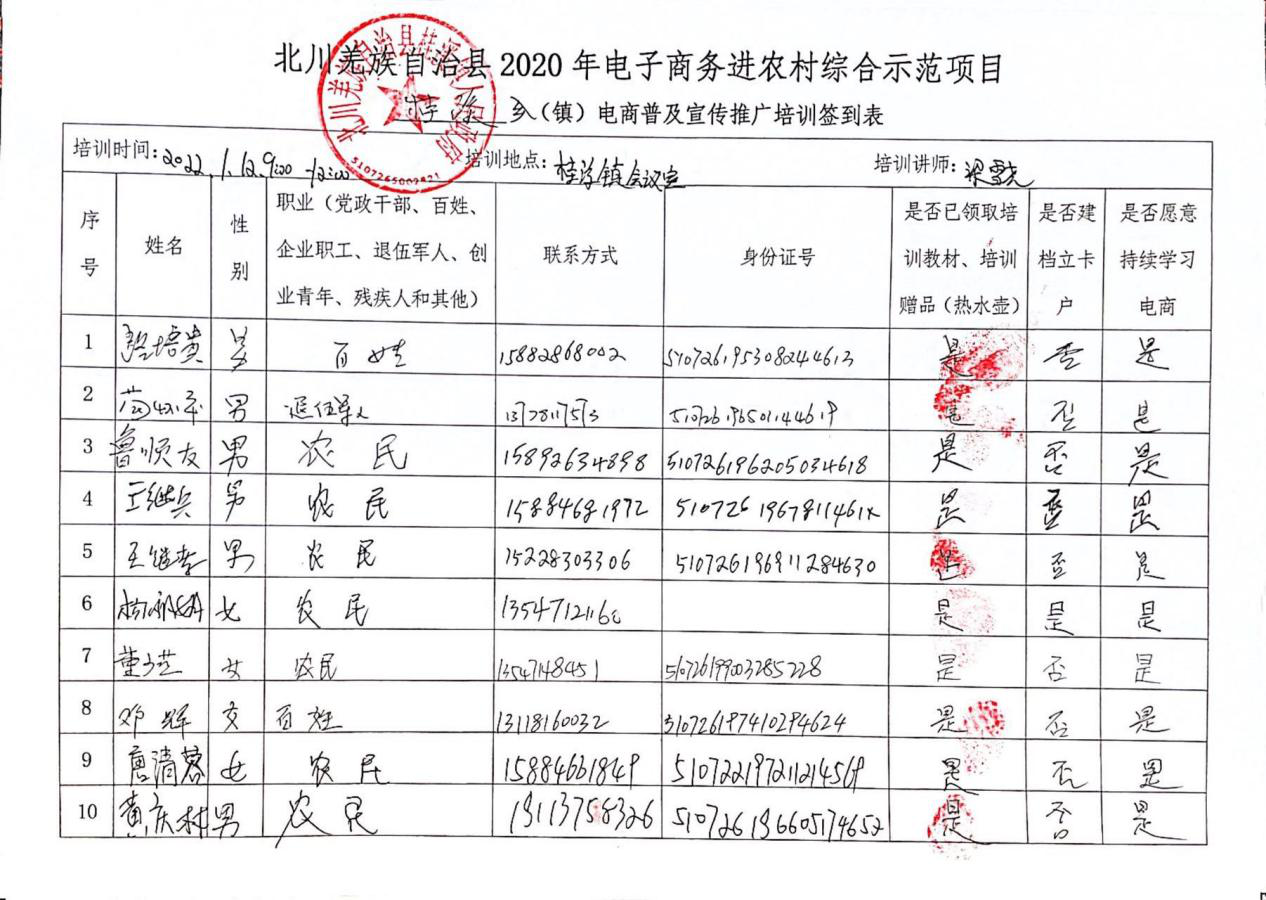 北川羌族自治县2020年电子商务进农村综合示范项目
乡（镇）电商普及宣传推广培训签到表
培训时间：2022.1.12.9:00-12:00 培训地点：桂溪镇会议室 培训讲师：
序号 姓名 性别 职业（党政干部、百姓、企业职工、退伍军人、创业青年、残疾人和其他） 联系方式 身份证号 是否已领取培训教材、培训赠品（热水壶） 是否建档立卡户 是否愿意持续学习电商
1 男 百姓 15882868002 510726195308244613 是 否 是
2 男 退伍军人 是 否 是
3 鲁顺友 男 农民 15892634898 510726196205034618 是 否 是
4 王继兵 男 农民 15884681972 是 否 是
5 王继孝 男 农民 15228303306 510726196911284630 是 否 是
6 女 农民 是 是 是
7 董少芝 女 农民 13547148451 510726199003285228 是 否 是
8 邓辉 女 百姓 13118160032 510726197410294624 是 否 是
9 唐清蓉 女 农民 15884661849 510722197211214569 是 否 是
10 黄庆林 男 农民 19113758326 510726196605174652 是 否 是
5107265002821